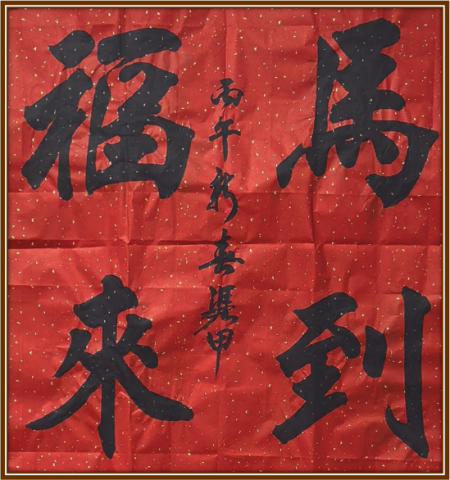 馬到
丙午新春甲
福來